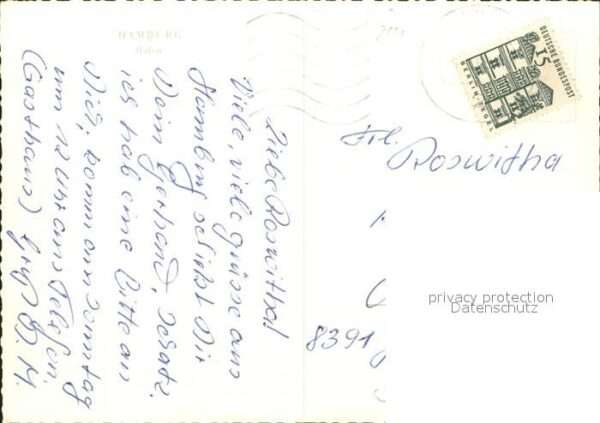 HAMBURG
Hafen
Liebe Roswitha!
Viele, viele Grüsse aus
Hamburg schickt Dir
Dein Gerhard,
ich hab eine Bitte an
Dich, komm am Sonntag
um 12 Uhr ans Telefon.
(Gasthaus) Gruß G. H.
DEUTSCHE BUNDESPOST
15
BERLIN
Frl.
Roswitha
8391
privacy protection
Datenschutz